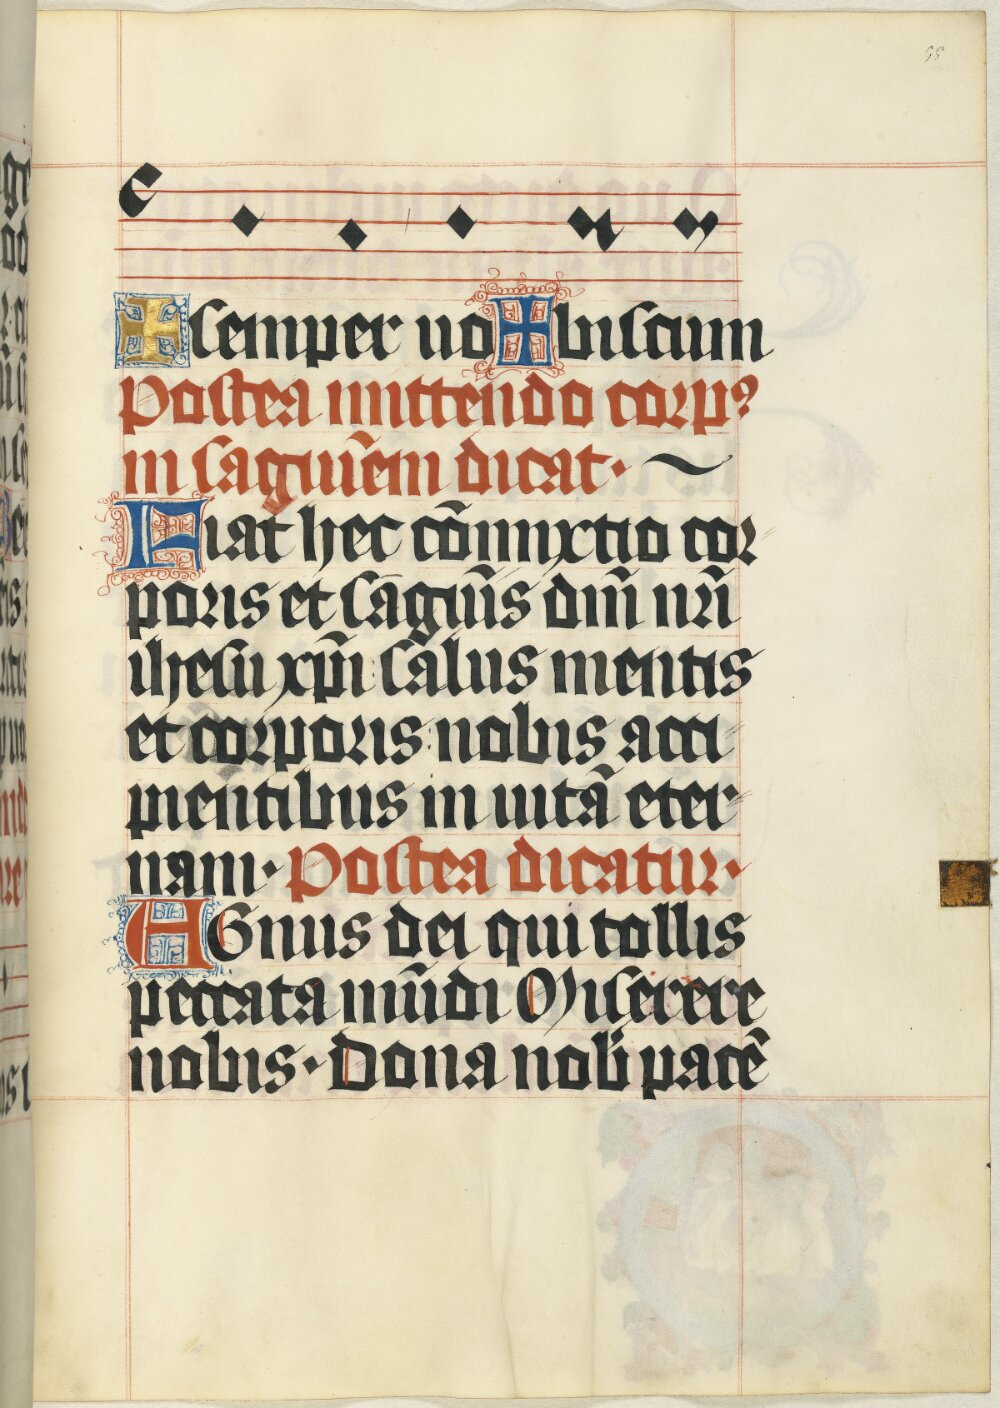 55
✠ semper uo ✠ biscum
Postea mittendo corpꝰ
in saguinem dicat·
Fiat hec cōmixtio cor
poris et sāguīs dn̄i nr̄i
ihesu xp̄i salus mentis
et corporis nobis acci
pientibus in uitā eter
nam· Postea dicatur·
AGnus dei qui tollis
peccata mūdi Miserere
nobis· Dona nob̄ pacē